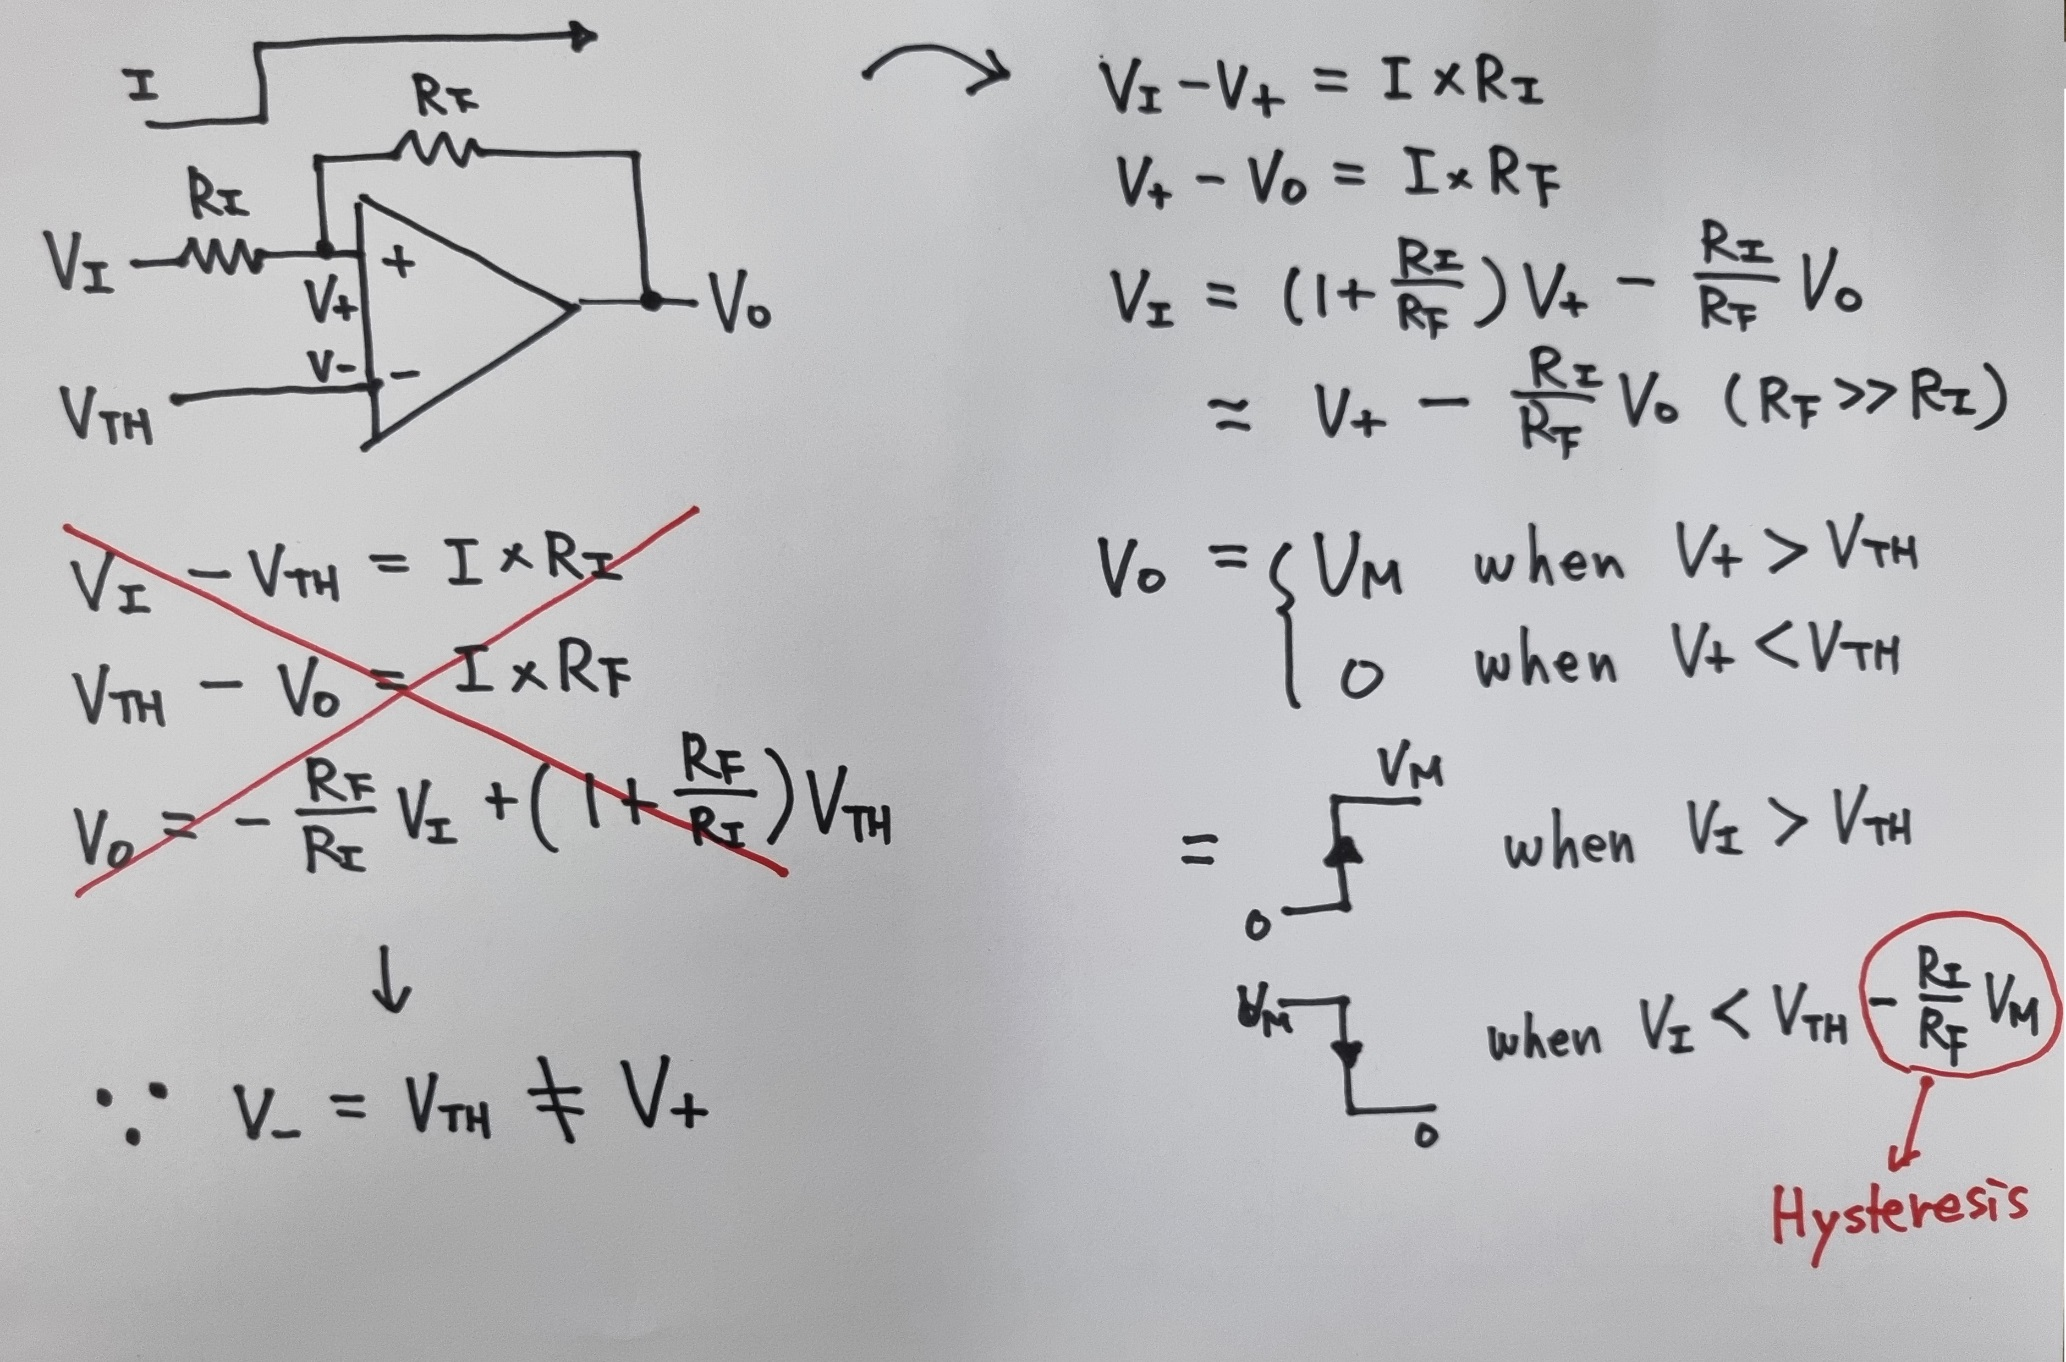 I
R_F
R_I
V_I
V+
+
V-
-
V_TH
V_O
V_I - V_TH = I × R_I
V_TH - V_O = I × R_F
V_O = - R_F/R_I V_I + (1 + R_F/R_I) V_TH
↓
∵ V_- = V_TH ≠ V+
V_I - V+ = I × R_I
V+ - V_O = I × R_F
V_I = (1 + R_I/R_F) V+ - R_I/R_F V_O
≈ V+ - R_I/R_F V_O (R_F >> R_I)
V_O = { V_M when V+ > V_TH
0 when V+ < V_TH
= 0 V_M when V_I > V_TH
V_M 0 when V_I < V_TH - R_I/R_F V_M
Hysteresis